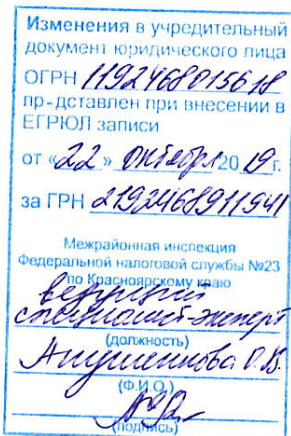 Изменения в учредительный
документ юридического лица
ОГРН 1192468015618
пр-дставлен при внесении в
ЕГРЮЛ записи
от «22» октября 2019 г.
за ГРН 2192468911941
Межрайонная инспекция
Федеральной налоговой службы №23
по Красноярскому краю
ведущий
специалист-эксперт
(должность)
О.В.
(Ф.И.О.)
(подпись)